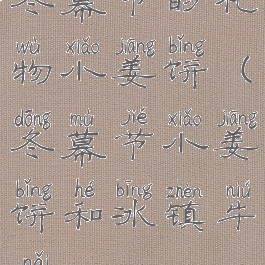 冬幕节的礼
wù xiǎo jiāng bǐng
物小姜饼（
dōng mù jié xiǎo jiāng
冬幕节小姜
bǐng hé bīng zhèn niú
饼和冰镇牛
nǎi